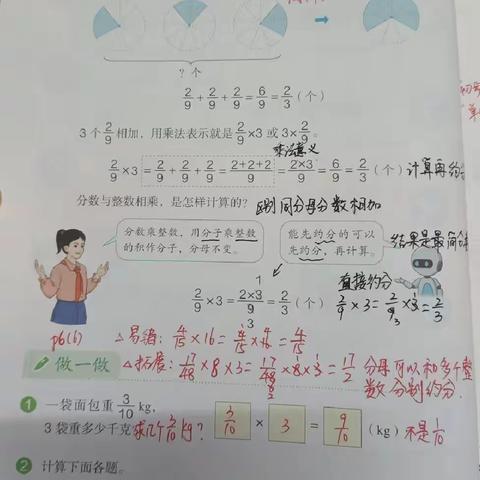 ? 个
2/9 + 2/9 + 2/9 = 6/9 = 2/3 (个)
3 个 2/9 相加，用乘法表示就是 2/9 ×3 或 3× 2/9 。
乘法意义
2/9 ×3 = 2/9 + 2/9 + 2/9 = 2+2+2/9 = 2×3/9 = 6/9 = 2/3 (个) 计算再约分
分数与整数相乘，是怎样计算的？ 同分母分数相加
分数乘整数，用分子乘整数
的积作分子，分母不变。
能先约分的可以
先约分，再计算。
结果是最简分
直接约分
2/9 ×3 = 2×3/9 = 2/3 (个)
1
3
2/9 × 3 = 2/9 × 3 = 2/3
3 1
p6(1) △易错: 4/15 × 16 = 4/15 × 16 = 4/15
做一做
△拓展: 17/48 × 8 × 3 = 17/48 × 8 × 3 = 17/2 分母可以和多个整
数分别约分.
1 一袋面包重 3/10 kg，
3 袋重多少千克 求几个 3/10 kg? 3/10 × 3 = 9/10 (kg) 不是 1/10
2 计算下面各题。